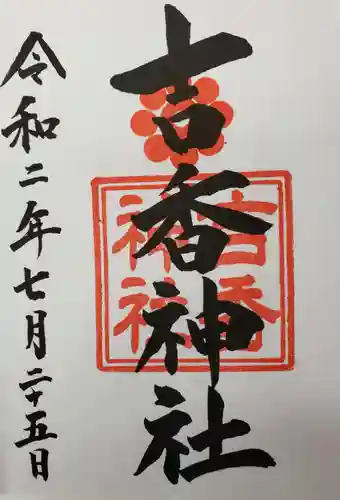 吉香神社
吉香
神社
令和二年七月二十五日